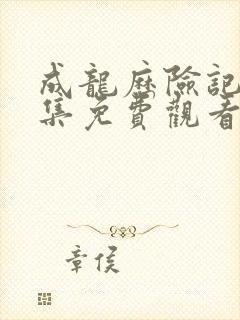 成龍歷險記
集免費觀看
章侯